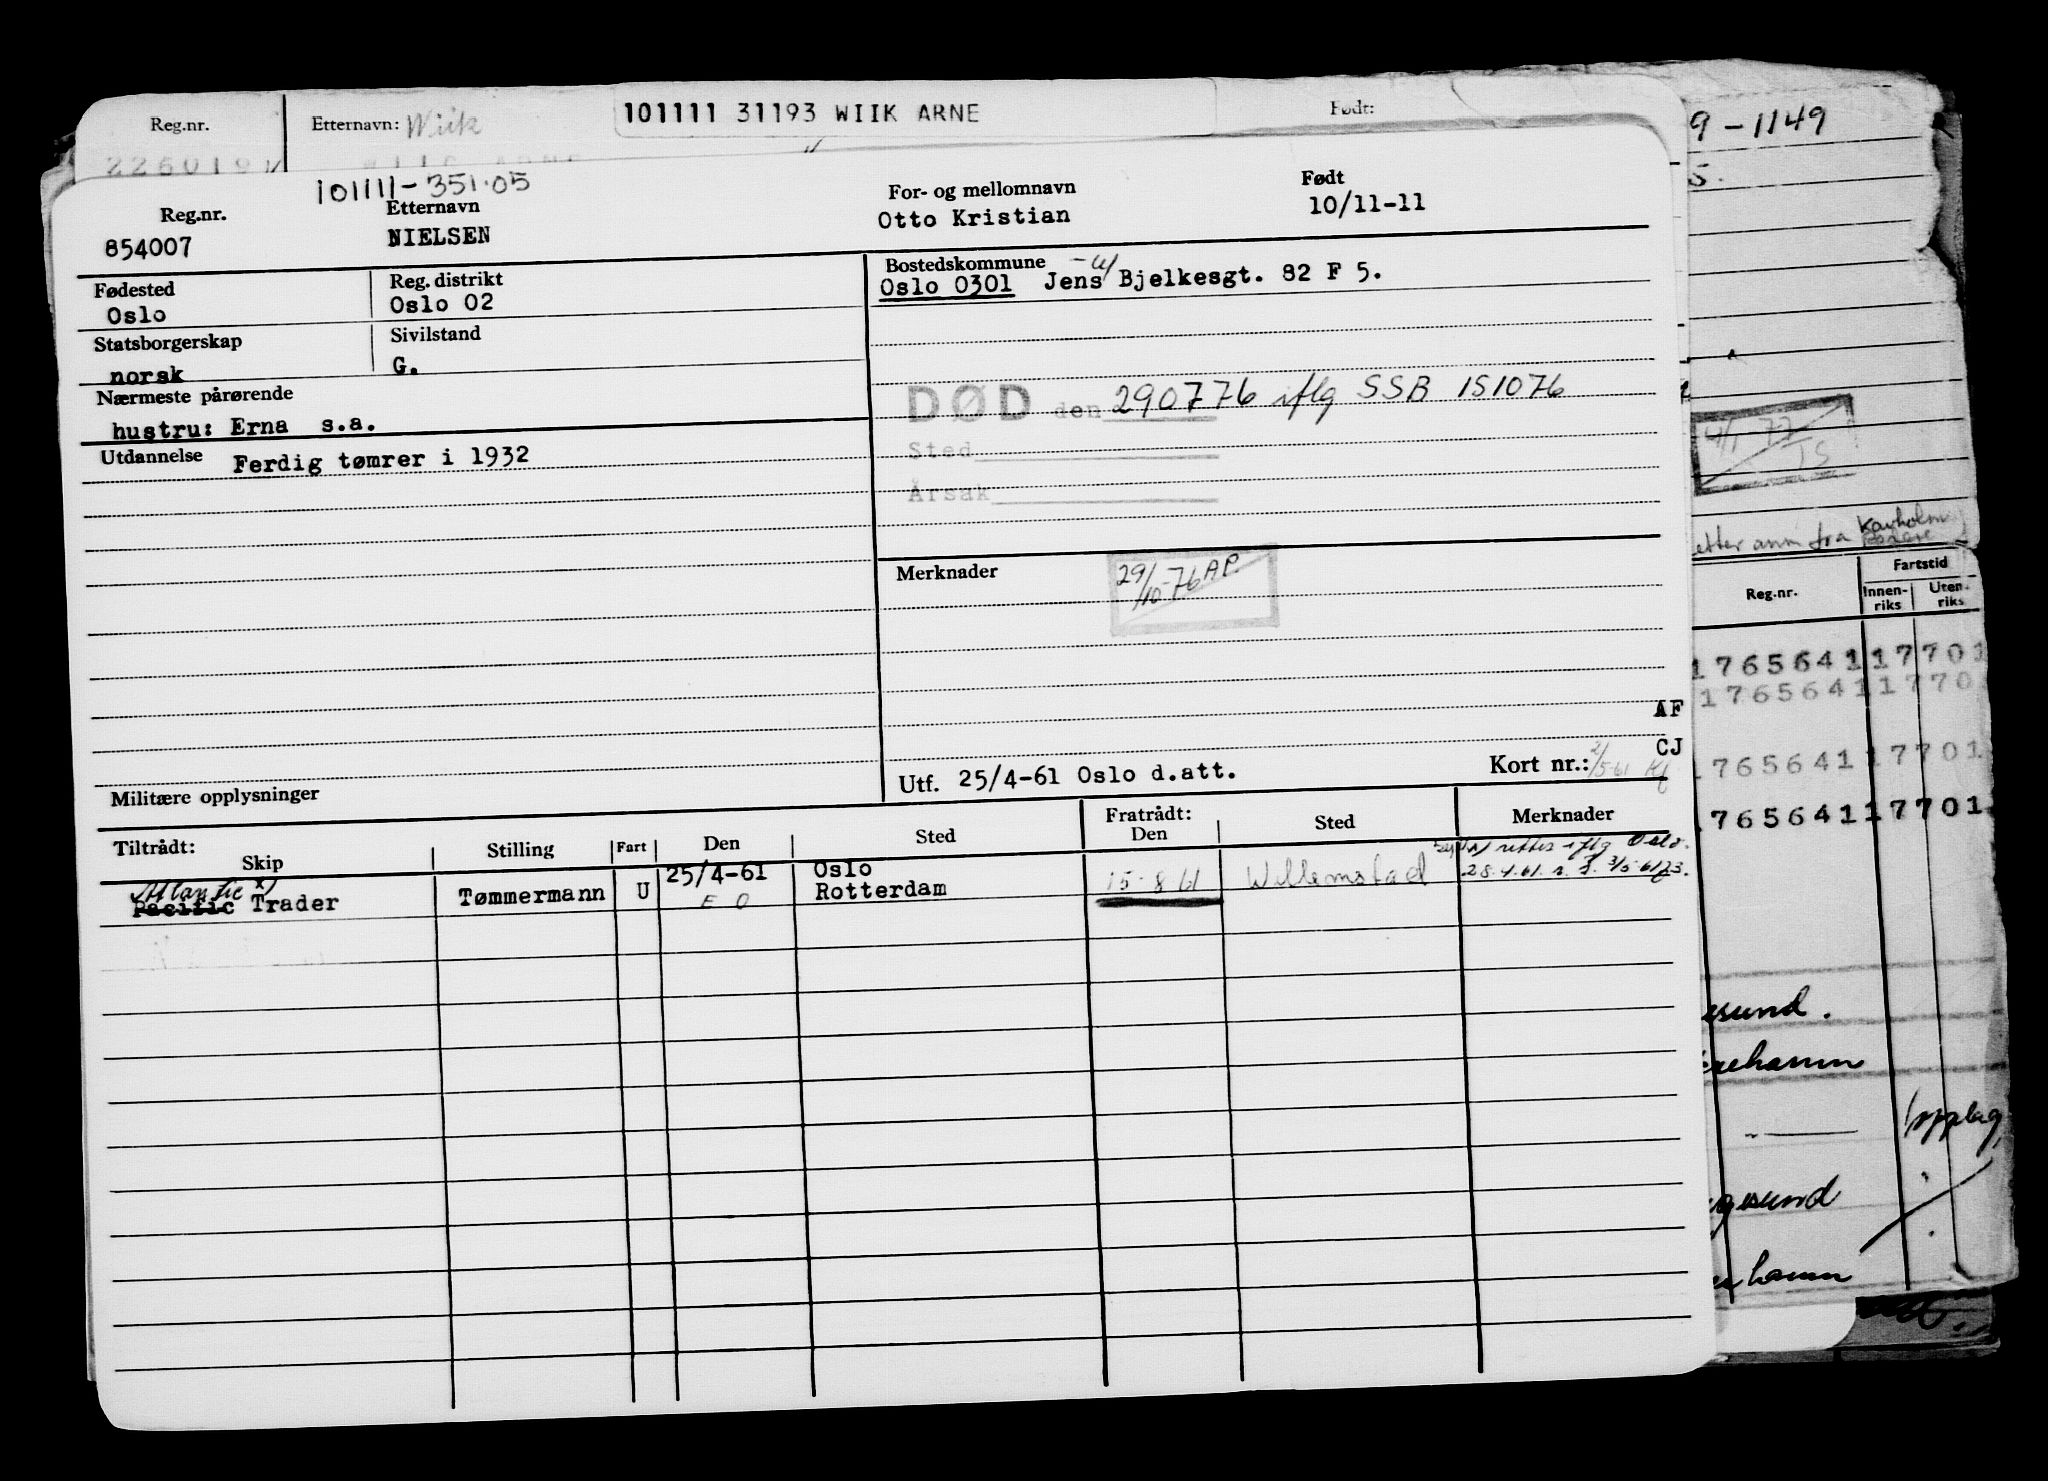 Reg.nr. Etternavn: Wiik 101111 31193 WIIK ARNE Født:
101111-351.05
Reg.nr. Etternavn For- og mellomnavn Født
854007 NIELSEN Otto Kristian 10/11-11
Fødested Reg. distrikt Bostedskommune
Oslo Oslo 02 Oslo 0301 Jens Bjelkesgt. 82 F 5.
Statsborgerskap Sivilstand
norsk G.
Nærmeste pårørende
hustru: Erna s.a.
DØD den 290776 iflg SSB 151076
Sted
Årsak
Utdannelse Ferdig tømrer i 1932
Merknader 29/10-76 AP.
AF
CJ
Utf. 25/4-61 Oslo d.att. Kort nr.: 2/5-61
Militære opplysninger
Tiltrådt: Fratrådt: Merknader
Skip Stilling Fart Den Sted Den Sted
Atlantic x) 25/4-61 Oslo
Pacific Trader Tømmermann U E O Rotterdam 15-8 61 Willemstad
x) rettes iflg Oslo.
9-1149
5.
4/1-77
JS
etter anm fra Kavholm
Reg.nr. Fartstid
Innen-riks Uten-riks
1765641 17701
1765641 1770
1765641 17701
1765641 17701
esund.
hamn
opplag
gesund
hamn